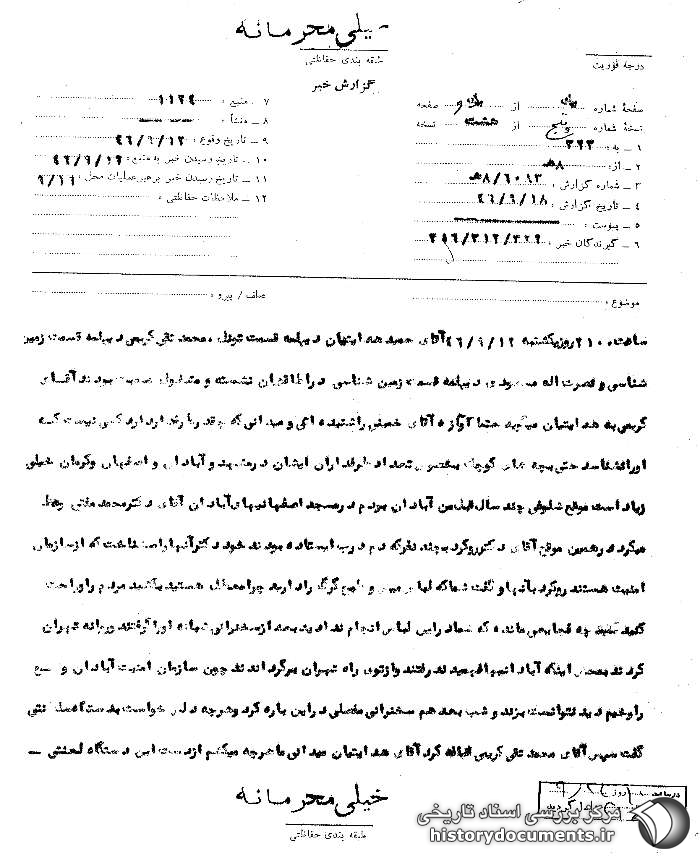 خیلی محرمانه
طبقه بندی حفاظتی
درجه فوریت
گزارش خبر
صفحهٔ شماره یک از یک و صفحه
نسخهٔ شماره پنج از هشت نسخه
۱ – به : ۳۲۳
۲ – از: ۸هـ
۳ – شماره گزارش : ۸/۶۰۱۳هـ
۴ – تاریخ گزارش : ۴۶/۹/۱۸
۵ – پیوست :
۶ – گیرندگان خبر : ۳۱۶/۳۱۲/۳۲۹
۷ – منبع : ۱۱۲۴
۸ – منشأ :
۹ – تاریخ وقوع : ۴۶/۹/۱۲
۱۰ – تاریخ رسیدن خبر به منبع : ۴۶/۹/۱۲
۱۱ – تاریخ رسیدن خبر برهبر عملیات محل : ۹/۱۶
۱۲ – ملاحظات حفاظتی :
موضوع :
عطف / پیرو :
ساعت ۲۱۰ روز یکشنبه ۴۶/۹/۱۲ آقای حمید هدایتیان دیپلمه قسمت ، محمد تقی کریمی دیپلمه قسمت زمین
شناسی و نصرت اله مسعودی دیپلمه قسمت زمین شناسی در اطاقشان نشسته و مشغول صحبت بودند آقای
کریمی به هدایتیان میگوید حتما آوازه آقای خمینی را شنیده ای و میدانی که چقدر طرفدار دارد کسی نیست که
او را نشناسد حتی بچه های کوچک بخصوص تعداد طرفداران ایشان در مشهد و آبادان و اصفهان و کرمان خیلی
زیاد است موقع شلوغی چند سال قبل من آبادان بودم در مسجد اصفهانیهای آبادان آقای دکتر محمد مفتی وعظ
میکرد در همین موقع آقای دکتر رو کرد به چند نفر که دم درب ایستاده بودند خود دکتر آنها را میشناخت که از سازمان
امنیت هستند رو کرد بآنها و گفت شما که لباس میش و گرگ دارید چرا معطل هستید بکشید مردم را و راحت
کنید چه فجایعی مانده که شما در این لباس انجام ندادید بعد از سخنرانی شبانه او را گرفتند و روانه تهران
کردند بمحض اینکه آبادانیها فهمیدند رفتند و از توی راه تهران برگرداندند چون سازمان امنیت آبادان وضع
را وخیم دید نتوانست بزند و شب بعد هم سخنرانی مفصلی در این باره کرد و هرچه دلش خواست بدستگاه
گفت سپس آقای محمد تقی کریمی اضافه کرد آقای هدایتیان میدانی ما هرچه میکشم از دست این دستگاه لعنتی –
خیلی محرمانه
طبقه بندی حفاظتی
مرکز بررسی اسناد تاریخی
historydocuments.ir